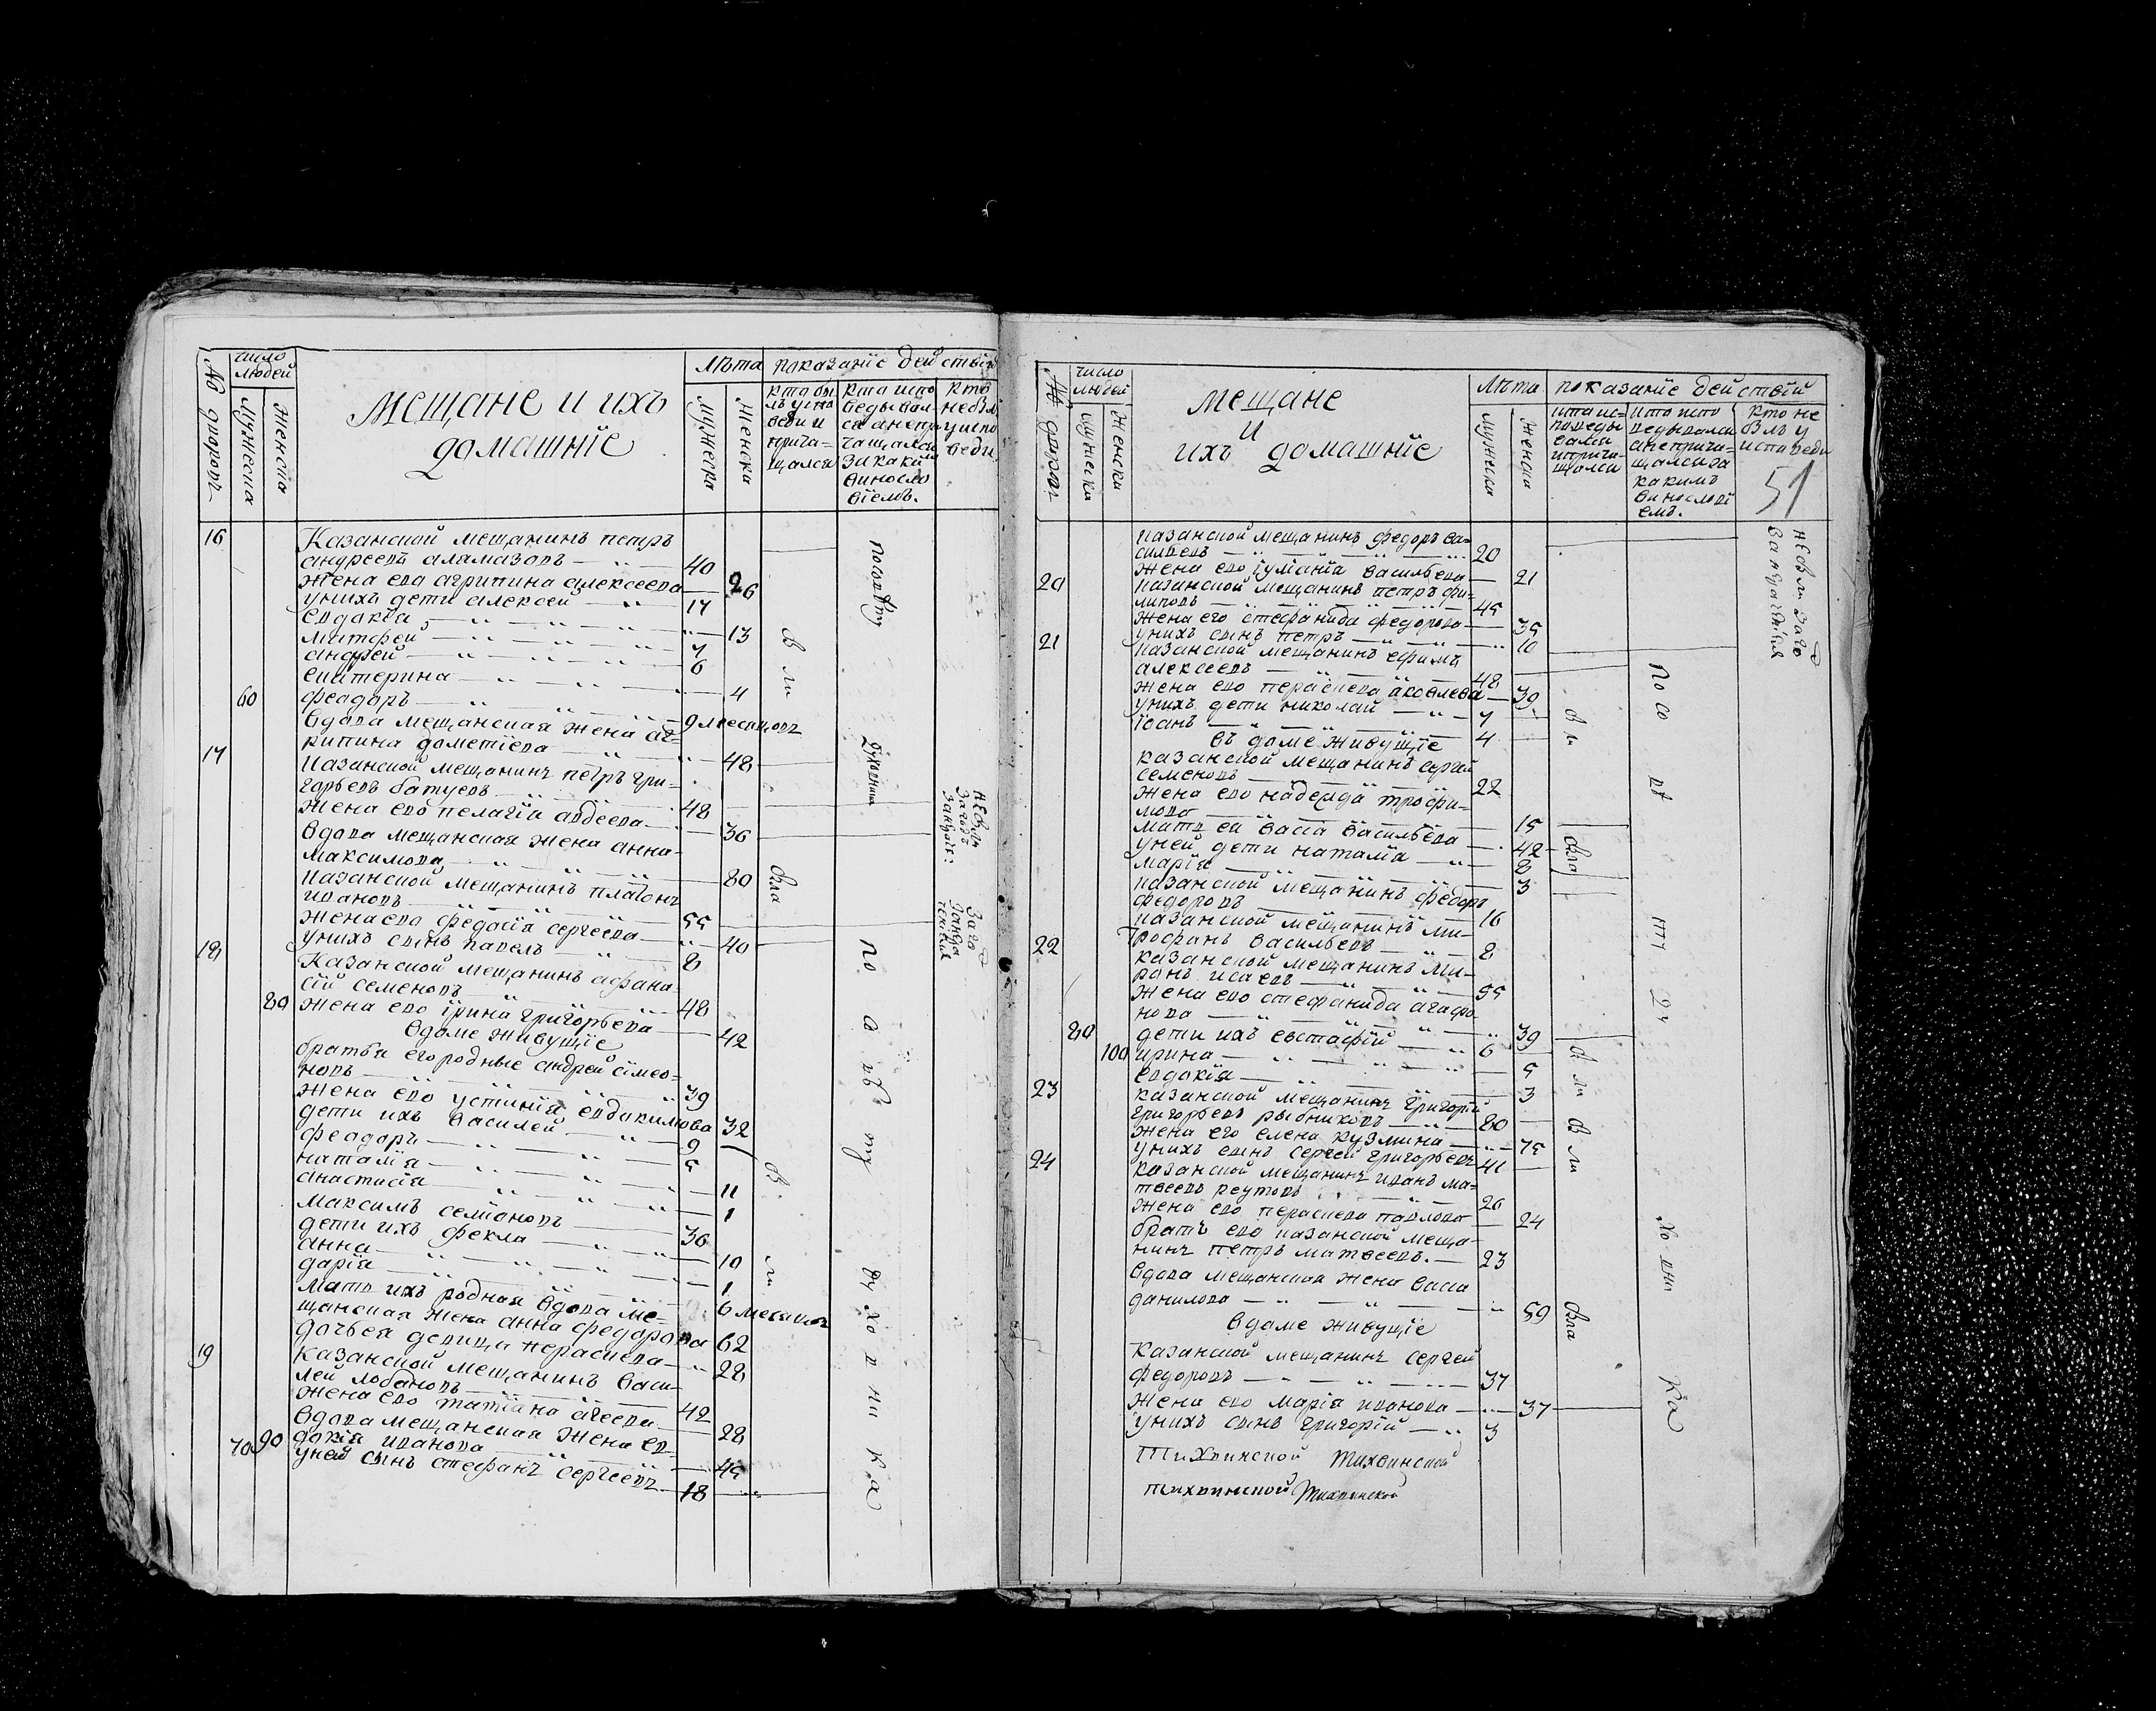 № дворовъ
число людей
Мужеска
Женска
Мещане и ихъ
домашнїе
Лѣта
Мужеска
Женска
показанїе действїй
16
Казанской мещанинъ петръ
андреевъ аламазовъ 40
жена ево агрипина алексеева 26
унихъ дети алексей 17
Евдакїа 13
матфей 7
андрей 6
екатерина 4
60 феадоръ 9 месяцовъ
вдова мещанская жена аг-
рипина дометїева 48
17
казанской мещанинъ петръ гри-
горьевъ батуевъ 48
жена ево пелагїа авдеева 36
вдова мещанская жена анна
максимова 80
казанской мещанинъ платонъ
ивановъ 55
жена ево федосїа сергеева 40
унихъ сынъ павелъ 8
18
Казанской мещанинъ афана-
сїй семеновъ 48
80 жена ево їрина григорьева 42
вдоме живущїе
братья егородные андрей сїмео-
новъ 39
жена ево устинїя евдакимова 32
дети ихъ василей 9
феадоръ 5
наталїа 11
анастасїа 1
максимъ семїоновъ 36
дети ихъ фекла 10
анна 1
дарїа 6 месяцовъ
мать ихъ родная вдова ме-
щанская жена анна федорова 62
дочь ея девица параскева 28
19
казанской мещанинъ васи-
лей лобановъ 42
жена ево татїана агеева 28
вдова мещанская жена ев-
докїя иванова 45
70 90 уней сынъ стефанъ сергеевъ 18
посовѣту
духовника
вли
вла
по совѣту духовника
№ дворов
число людей
мужеска
Женска
мещане
и
ихъ домашнїе
Лѣта
мужеска
женска
показанїе действїй
кто не
былъ у
исповеди
51
казанской мещанинъ федоръ ва-
сильевъ 20
жена ево їулїанїа васильева 21
20
казанской мещанинъ петръ фи-
липовъ 45
жена его стефанида федорова 35
унихъ сынъ петръ 10
21
казанской мещанинъ ефимъ
алексеевъ 48
жена ево параскева яковлева 39
унихъ дети николай 7
їоанъ 4
въ доме живущїе
казанской мещанинъ сергей
семеновъ 22
жена ево надежда трофи-
мова 15
мать ея васса васильева 42
уней дети наталїа 8
марїя 3
казанской мещанинъ федоръ
федоровъ 16
казанской мещанинъ ми-
трофанъ васильевъ 8
22
казанской мещанинъ ми-
ронъ исаевъ 55
жена ево стефанида агафо-
нова 39
80 дети ихъ евстафїй 6
100 ирина 5
евдокїя 3
23
казанской мещанинъ григорїй
григорьевъ рыбниковъ 80
жена его елена кузмина 75
унихъ сынъ сергей григорьевъ 41
24
казанской мещанинъ иванъ ма-
твеевъ реутовъ 26
жена ево параскева павлова 24
братъ ево казанской меща-
нинъ петръ матвеевъ. 23
вдова мещанская жена васса
данилова 59
вдоме живущїе
казанской мещанинъ сергей
федоровъ 37
жена ево марїа иванова 37
унихъ сынъ григорїй 3
Тихвинской Тихвинской
тихвинской Тихвинской